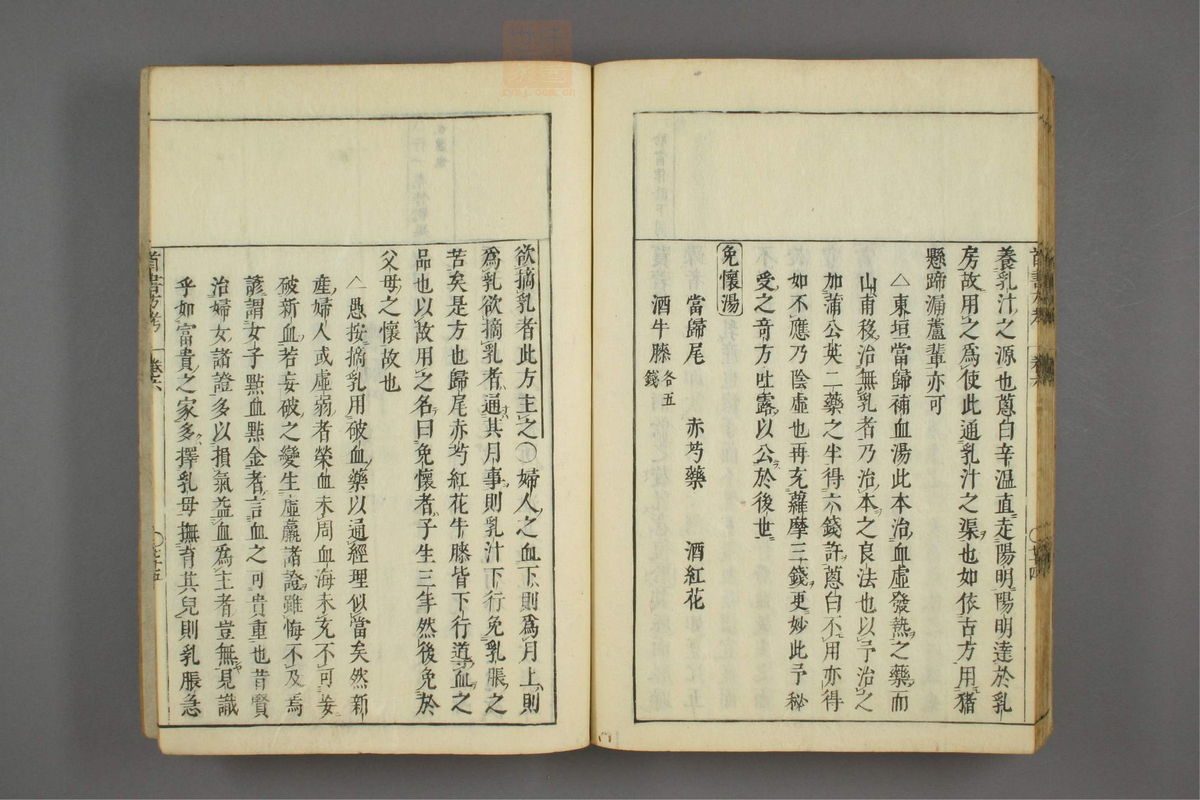 養乳汁之源也蔥白辛溫直走陽明陽明達於乳
房故用之爲使此通乳汁之渠也如依古方用猪
懸蹄漏蘆輩亦可
△東垣當歸補血湯此本治血虛發熱之藥而
山甫移治無乳者乃治本之良法也以予治之
加蒲公英二藥之半得六錢許蔥白不用亦得
如不應乃陰虛也再克蘿摩三錢更妙此予秘
受之奇方吐露以公於後世
免懷湯
當歸尾 赤芍藥 酒紅花
酒牛膝各五錢
欲摘乳者此方主之○婦人之血下則爲月上則
爲乳欲摘乳者通其月事則乳汁下行免乳脹之
苦矣是方也歸尾赤芍紅花牛膝皆下行導血之
品也以故用之名曰免懷者子生三年然後免於
父母之懷故也
△愚按摘乳用破血藥以通經理似當矣然新
產婦人或虛弱者榮血未周血海未充不可妄
破新血若妄破之變生虛羸諸證雖悔不及焉
諺謂女子點血點金者言血之可貴重也昔賢
治婦女諸證多以損氣益血爲主者豈無見識
乎如富貴之家多擇乳母撫育其兒則乳脹急
首書方考 卷六 ○七十五